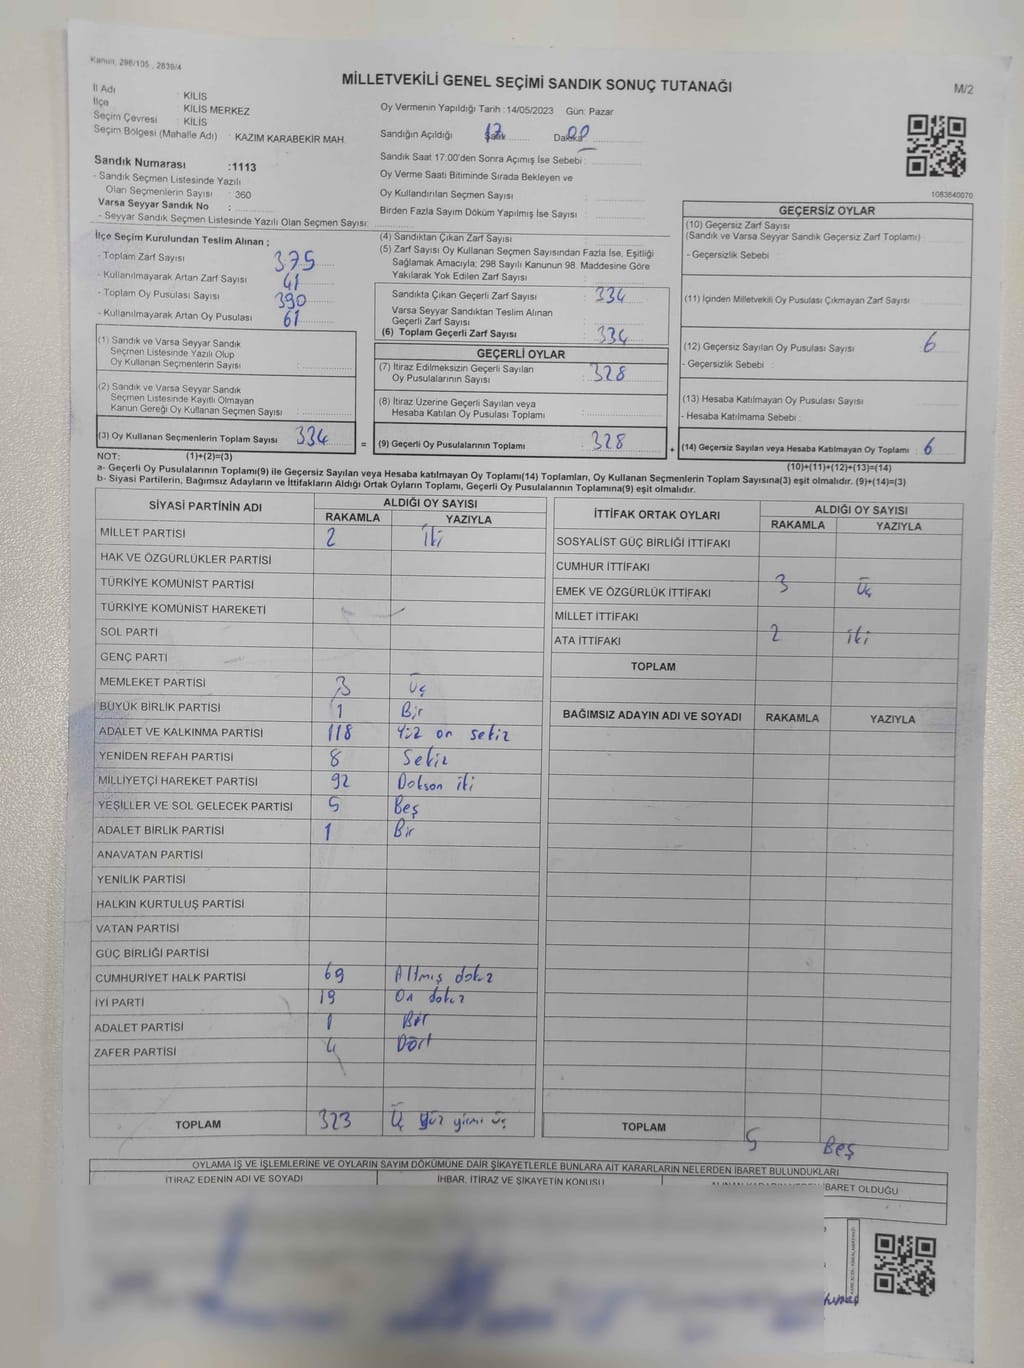 Kanun, 298/105 , 2839/4
MİLLETVEKİLİ GENEL SEÇİMİ SANDIK SONUÇ TUTANAĞI
M/2
İl Adı : KİLİS
İlçe : KİLİS MERKEZ
Seçim Çevresi : KİLİS
Seçim Bölgesi (Mahalle Adı) : KAZIM KARABEKİR MAH.
Oy Vermenin Yapıldığı Tarih :14/05/2023 Gün: Pazar
Sandığın Açıldığı Saat 17 Dakika 00
Sandık Saat 17:00'den Sonra Açımış İse Sebebi :
Oy Verme Saati Bitiminde Sırada Bekleyen ve
Oy Kullandırılan Seçmen Sayısı
Birden Fazla Sayım Döküm Yapılmış İse Sayısı
Sandık Numarası :1113
- Sandık Seçmen Listesinde Yazılı
Olan Seçmenlerin Sayısı : 360
Varsa Seyyar Sandık No :
- Seyyar Sandık Seçmen Listesinde Yazılı Olan Seçmen Sayısı:
1083640070
İlçe Seçim Kurulundan Teslim Alınan ;
- Toplam Zarf Sayısı : 375
- Kullanılmayarak Artan Zarf Sayısı : 41
- Toplam Oy Pusulası Sayısı : 390
- Kullanılmayarak Artan Oy Pusulası : 61
(1) Sandık ve Varsa Seyyar Sandık
Seçmen Listesinde Yazılı Olup
Oy Kullanan Seçmenlerin Sayısı :
(2) Sandık ve Varsa Seyyar Sandık
Seçmen Listesinde Kayıtlı Olmayan
Kanun Gereği Oy Kullanan Seçmen Sayısı :
(3) Oy Kullanan Seçmenlerin Toplam Sayısı 334
(4) Sandıktan Çıkan Zarf Sayısı
(5) Zarf Sayısı Oy Kullanan Seçmen Sayısından Fazla İse, Eşitliği
Sağlamak Amacıyla; 298 Sayılı Kanunun 98. Maddesine Göre
Yakılarak Yok Edilen Zarf Sayısı
Sandıkta Çıkan Geçerli Zarf Sayısı : 334
Varsa Seyyar Sandıktan Teslim Alınan
Geçerli Zarf Sayısı
(6) Toplam Geçerli Zarf Sayısı : 334
GEÇERLİ OYLAR
(7) İtiraz Edilmeksizin Geçerli Sayılan
Oy Pusulalarının Sayısı : 328
(8) İtiraz Üzerine Geçerli Sayılan veya
Hesaba Katılan Oy Pusulası Toplamı :
= (9) Geçerli Oy Pusulalarının Toplamı : 328
GEÇERSİZ OYLAR
(10) Geçersiz Zarf Sayısı
(Sandık ve Varsa Seyyar Sandık Geçersiz Zarf Toplamı) :
- Geçersizlik Sebebi :
(11) İçinden Milletvekili Oy Pusulası Çıkmayan Zarf Sayısı
(12) Geçersiz Sayılan Oy Pusulası Sayısı : 6
- Geçersizlik Sebebi :
(13) Hesaba Katılmayan Oy Pusulası Sayısı
- Hesaba Katılmama Sebebi :
+ (14) Geçersiz Sayılan veya Hesaba Katılmayan Oy Toplamı : 6
NOT: (1)+(2)=(3)
(10)+(11)+(12)+(13)=(14)
a- Geçerli Oy Pusulalarının Toplamı(9) ile Geçersiz Sayılan veya Hesaba katılmayan Oy Toplamı(14) Toplamları, Oy Kullanan Seçmenlerin Toplam Sayısına(3) eşit olmalıdır. (9)+(14)=(3)
b- Siyasi Partilerin, Bağımsız Adayların ve İttifakların Aldığı Ortak Oyların Toplamı, Geçerli Oy Pusulalarının Toplamına(9) eşit olmalıdır.
SİYASİ PARTİNİN ADI ALDIĞI OY SAYISI
RAKAMLA YAZIYLA
MİLLET PARTİSİ 2 İki
HAK VE ÖZGÜRLÜKLER PARTİSİ
TÜRKİYE KOMÜNİST PARTİSİ
TÜRKİYE KOMÜNİST HAREKETİ
SOL PARTİ
GENÇ PARTİ
MEMLEKET PARTİSİ 3 Üç
BÜYÜK BİRLİK PARTİSİ 1 Bir
ADALET VE KALKINMA PARTİSİ 118 Yüz on sekiz
YENİDEN REFAH PARTİSİ 8 Sekiz
MİLLİYETÇİ HAREKET PARTİSİ 92 Doksan iki
YEŞİLLER VE SOL GELECEK PARTİSİ 5 Beş
ADALET BİRLİK PARTİSİ 1 Bir
ANAVATAN PARTİSİ
YENİLİK PARTİSİ
HALKIN KURTULUŞ PARTİSİ
VATAN PARTİSİ
GÜÇ BİRLİĞİ PARTİSİ
CUMHURİYET HALK PARTİSİ 69 Altmış dokuz
İYİ PARTİ 19 On dokuz
ADALET PARTİSİ 1 Bir
ZAFER PARTİSİ 4 Dört
TOPLAM 323 Üç yüz yirmi üç
İTTİFAK ORTAK OYLARI ALDIĞI OY SAYISI
RAKAMLA YAZIYLA
SOSYALİST GÜÇ BİRLİĞİ İTTİFAKI
CUMHUR İTTİFAKI 3 Üç
EMEK VE ÖZGÜRLÜK İTTİFAKI
MİLLET İTTİFAKI 2 iki
ATA İTTİFAKI
TOPLAM
BAĞIMSIZ ADAYIN ADI VE SOYADI RAKAMLA YAZIYLA
TOPLAM 5 Beş
OYLAMA İŞ VE İŞLEMLERİNE VE OYLARIN SAYIM DÖKÜMÜNE DAİR ŞİKAYETLERLE BUNLARA AİT KARARLARIN NELERDEN İBARET BULUNDUKLARI
İTİRAZ EDENİN ADI VE SOYADI İHBAR, İTİRAZ VE ŞİKAYETİN KONUSU İBARET OLDUĞU